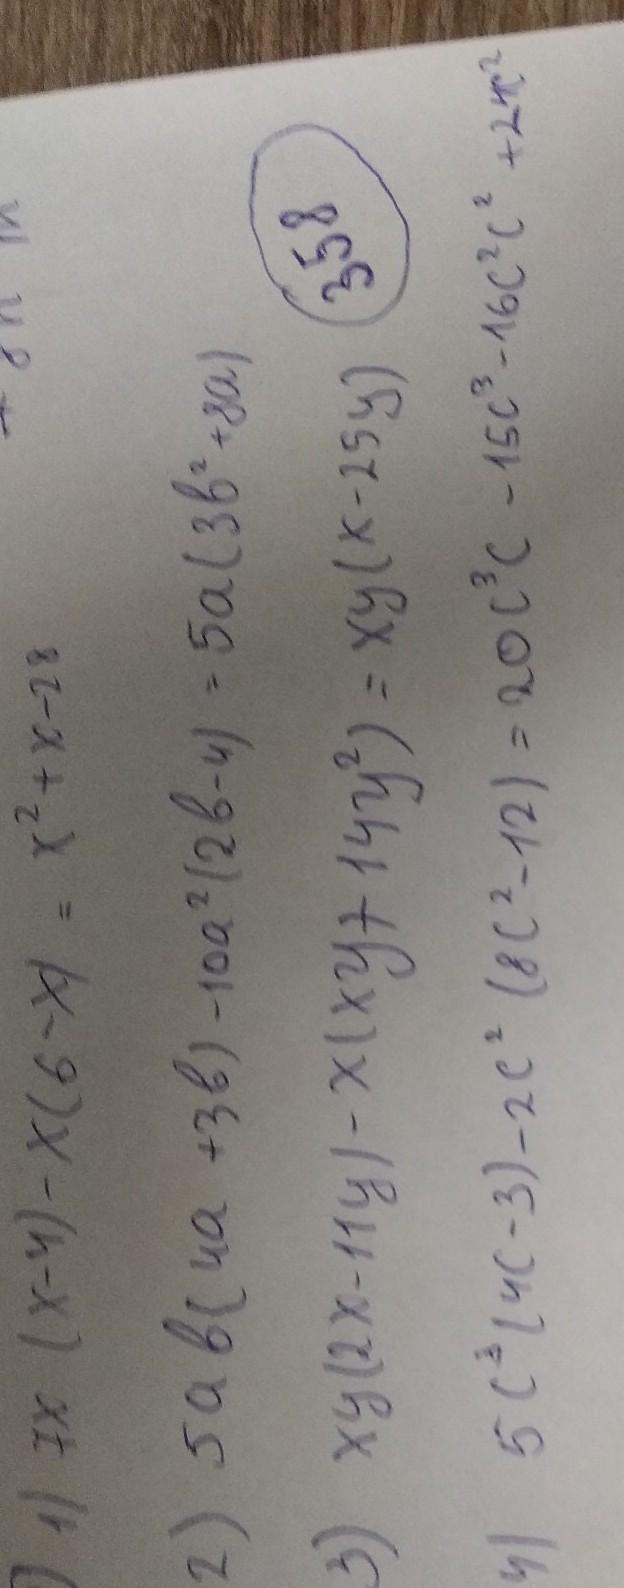 1) 7x (x-4) - x(6-x) = x² + x - 28
2) 5ab(4a +3b) -10a²(2b-4) = 5a(3b²+8a)
3) xy(2x-11y) - x(xy+14y²) = xy(x-25y)
358
4) 5c³(4c-3)-2c² (8c²-12) = 20c³c -15c³ -16c²c² +24c²